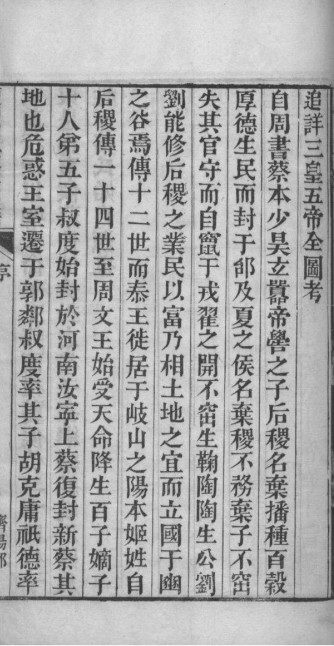 追詳三皇五帝全圖考
自周書蔡本少昊立嚣帝嚳之子后稷名棄播種百穀
厚德生民而封于邰及夏之侯名棄稷不務棄子不窋
失其官守而自竄于戎翟之開不窋生鞠陶陶生公劉
劉能修后稷之業民以富乃相土地之宜而立國于豳
之谷焉傳十二世而泰王徙居于岐山之陽本姬姓自
后稷傳一十四世至周文王始受天命降生百子嫡子
十人第五子叔度始封於河南汝寧上蔡復封新蔡其
地也危惑王室遷于郭鄰叔度率其子胡克庸祇德率
序
濟陽郡